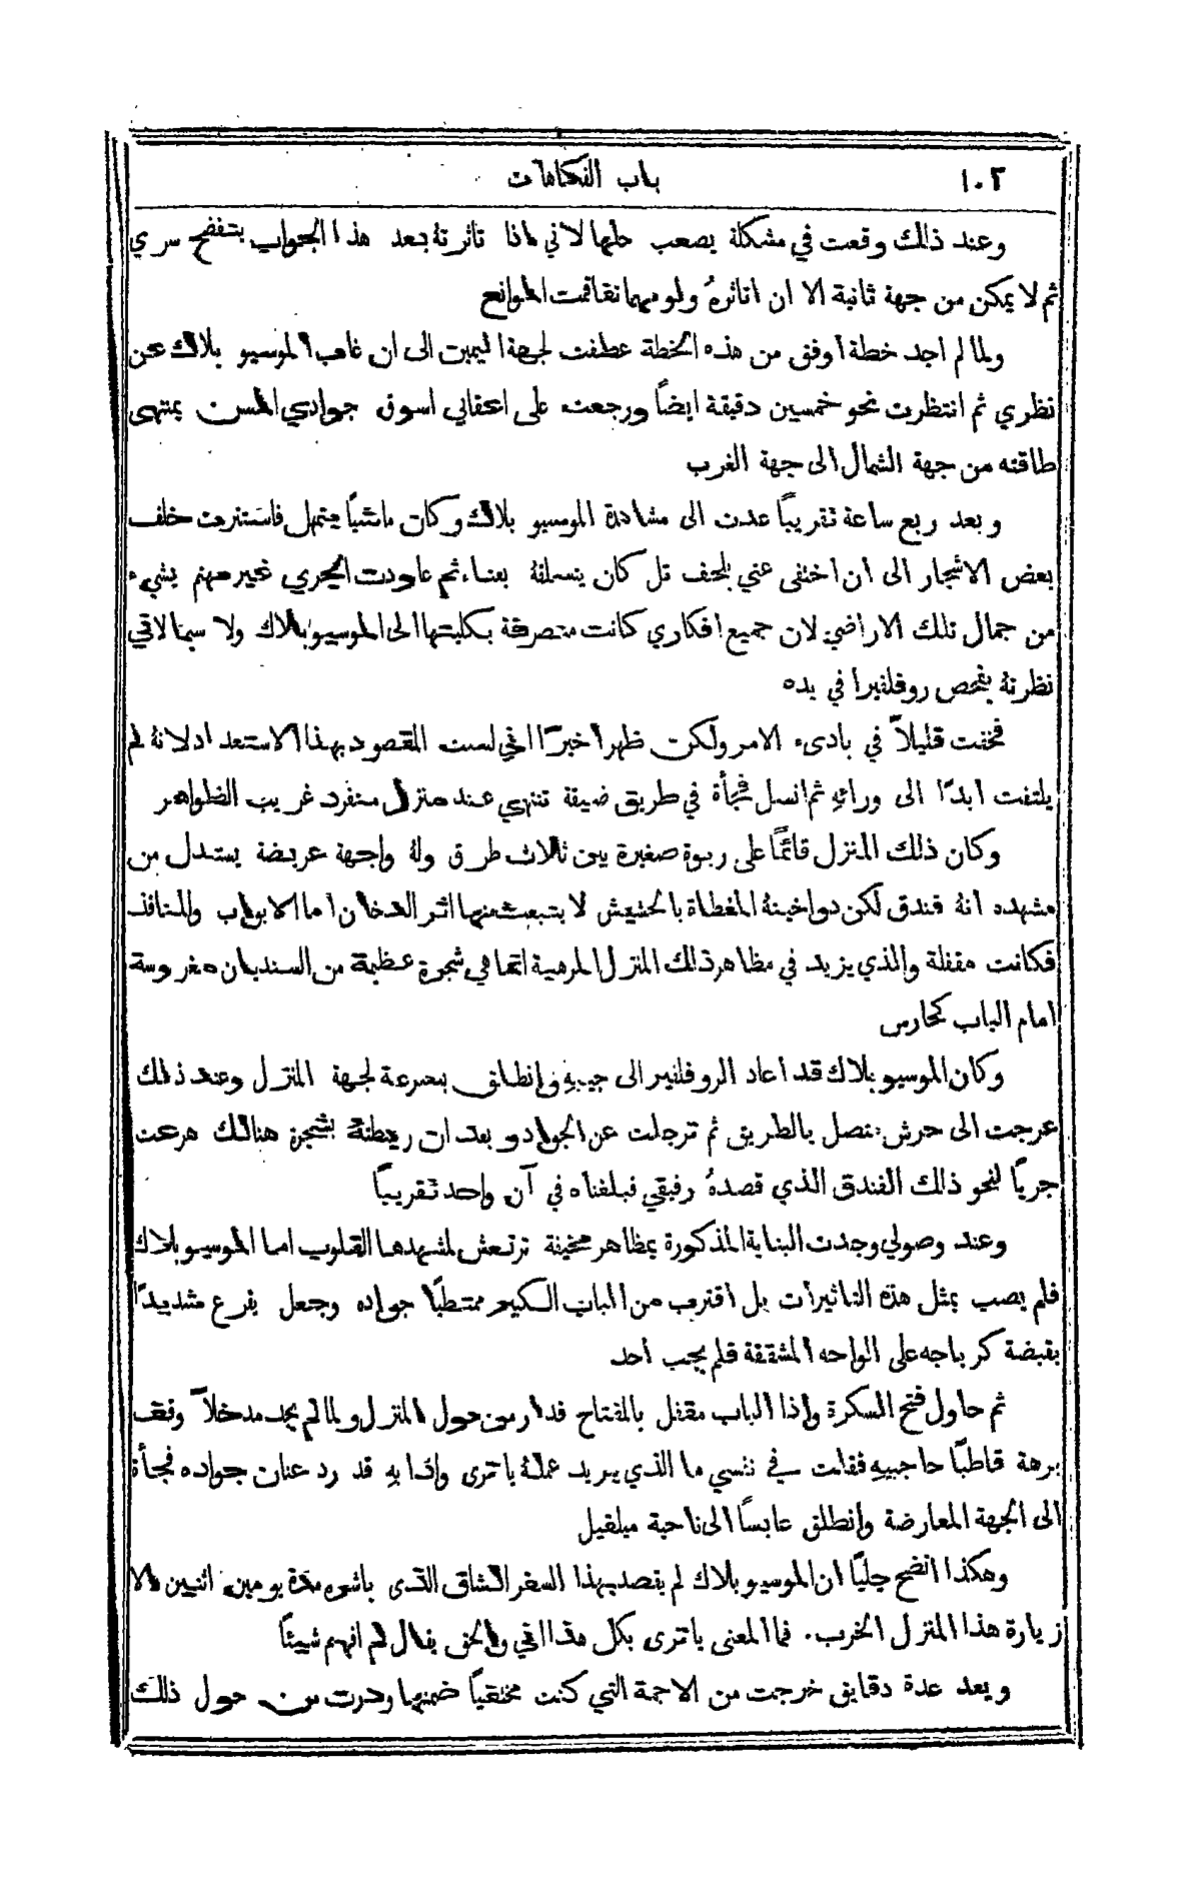 ١٠٢
باب الفكاهات
وعند ذلك وقعت في مشكلة يصعب حلها لاني اذا تاثرتهُ بعد هذا الجواب يتفضح سري
ثم لا يمكن من جهة ثانية الا ان اتاثرهُ ولو مهما تفاقمت الموانع
ولما لم اجد خطة اوفق من هذه الخطة عطفت لجهة اليمين الى ان غاب الموسيو بلاك عن
نظري ثم انتظرت نحو خمسين دقيقة ايضاً ورجعت على اعقابي اسوق جوادي المسن بمنتهى
طاقته من جهة الشمال الى جهة الغرب
وبعد ربع ساعة تقريباً عدت الى مشاهدة الموسيو بلاك وكان ماشياً بتمهل فاستترت خلف
بعض الاشجار الى ان اختفى عني بلحف تل كان يتسلقهُ بعناء ثم عاودت الجري غير مهتم بشيء
من جمال تلك الاراضي لان جميع افكاري كانت متصرفة بكليتها الى الموسيو بلاك ولا سيما لاني
نظرتهُ يفحص روفلفيرا في يده
فخفت قليلاً في بادىء الامر ولكن ظهر اخيرًا اني لست المقصود بهذا الاستعداد لانهُ لم
يلتفت ابدًا الى ورائهِ ثم انسل فجأة في طريق ضيقة تنتهي عند منزل منفرد غريب الظواهر
وكان ذلك المنزل قائمًا على ربوة صغيرة بين ثلاث طرق ولهُ واجهة عريضة يستدل من
مشهده انهُ فندق لكن دواخينهُ المغطاة بالحشيش لا ينبعث منها اثر الدخان اما الابواب والمنافذ
فكانت مقفلة والذي يزيد في مظاهر ذلك المنزل المرهبة انما هي شجرة عظيمة من السنديان مغروسة
امام الباب كحارس
وكان الموسيو بلاك قد اعاد الروفلفير الى جيبهِ وانطلق بسرعة لجهة المنزل وعند ذلك
عرجت الى حرش متصل بالطريق ثم ترجلت عن الجواد وبعد ان ربطتهُ بشجرة هنالك هرعت
جرياً لنحو ذلك الفندق الذي قصدهُ رفيقي فبلغناه في آن واحد تقريباً
وعند وصولي وجدت البناية المذكورة بمظاهر مخيفة ترتعش لمشهدها القلوب اما الموسيو بلاك
فلم يصب بمثل هذه التاثيرات بل اقترب من الباب الكبير ممتطيًا جواده وجعل يقرع شديدًا
بقبضة كرباجه على الواحه المشققة فلم يجب احد
ثم حاول فتح السكرة واذا الباب مقفل بالمفتاح فدار من حول المنزل ولما لم يجد مدخلاً وقف
برهة قاطبًا حاجبيهِ فقلت في نفسي ما الذي يريد عملهُ يا ترى واذا بهِ قد رد عنان جواده فجأة
الى الجهة المعارضة وانطلق عابسًا الى ناحية ميلفيل
وهكذا اتضح جليًا ان الموسيو بلاك لم يقصد بهذا السفر الشاق الذي باشره مدة يومين اثنين الا
زيارة هذا المنزل الخرب. فما المعنى يا ترى بكل هذا اني والحق يقال لم افهم شيئًا
وبعد عدة دقايق خرجت من الاجمة التي كنت مختفياً ضمنها ودرت من حول ذلك